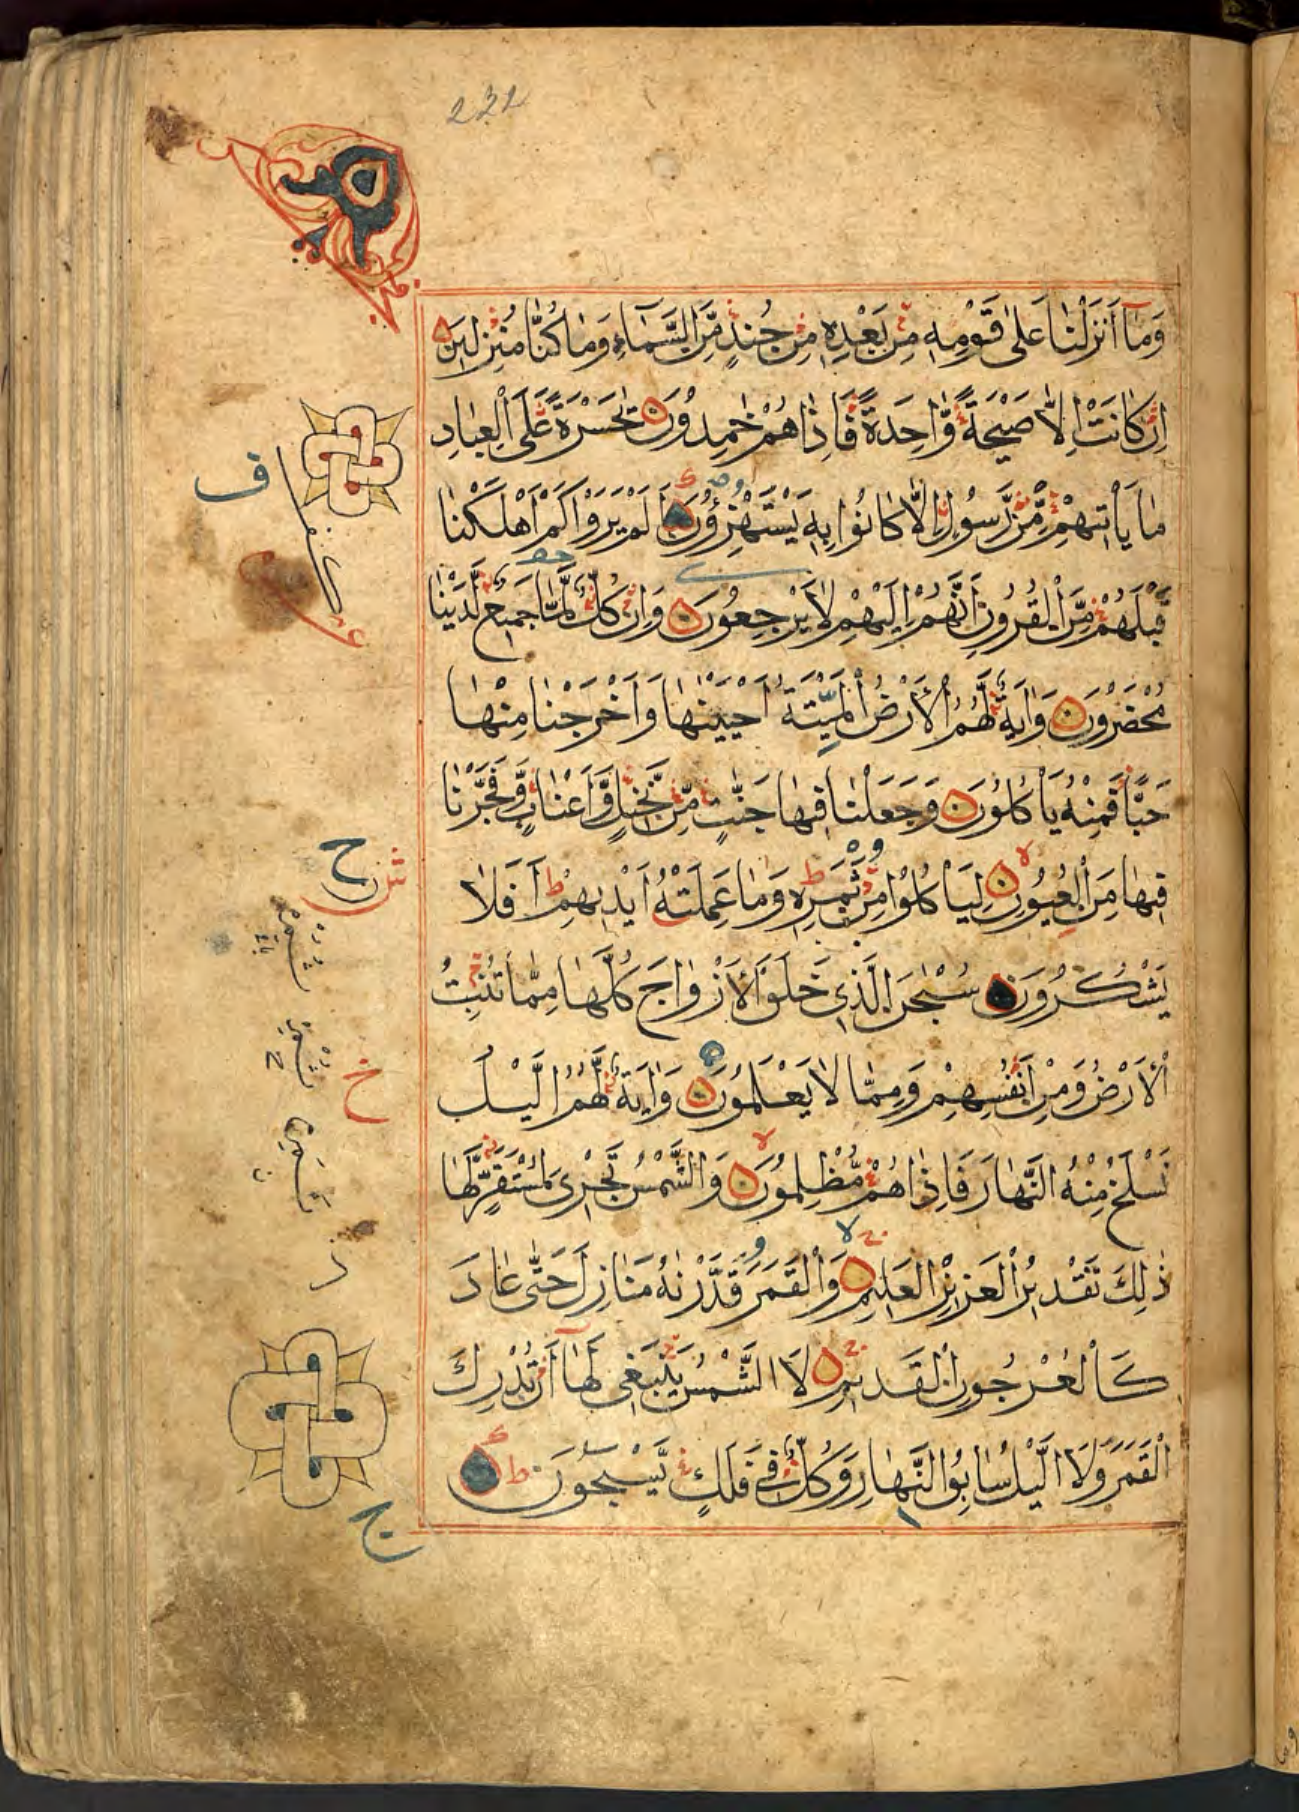 232
وَمَآ أَنْزَلْنَا عَلىٰ قَوْمِهِ مِنْ بَعْدِهِ مِنْ جُنْدٍ مِّنَ السَّمَآءِ وَمَا كُنَّا مُنْزِلِيْنَ
اِنْ كَانَتْ اِلَّا صَيْحَةً وَّاحِدَةً فَاِذَا هُمْ خٰمِدُوْنَ يٰحَسْرَةً عَلَى الْعِبَادِ
مَا يَأْتِيْهِمْ مِّنْ رَّسُوْلٍ اِلَّا كَانُوْا بِهِ يَسْتَهْزِؤُوْنَ اَلَمْ يَرَوْا كَمْ اَهْلَكْنَا
قَبْلَهُمْ مِّنَ الْقُرُوْنِ اَنَّهُمْ اِلَيْهِمْ لَا يَرْجِعُوْنَ وَاِنْ كُلٌّ لَّمَّا جَمِيْعٌ لَّدَيْنَا
مُحْضَرُوْنَ وَاٰيَةٌ لَّهُمُ الْأَرْضُ الْمَيِّتَةُ اَحْيَيْنٰهَا وَاَخْرَجْنَا مِنْهَا
حَبًّا فَمِنْهُ يَأْكُلُوْنَ وَجَعَلْنَا فِيْهَا جَنّٰتٍ مِّنْ نَّخِيْلٍ وَّاَعْنَابٍ وَّفَجَّرْنَا
فِيْهَا مِنَ الْعُيُوْنِ لِيَأْكُلُوْا مِنْ ثَمَرِهِ وَمَا عَمِلَتْهُ اَيْدِيْهِمْ ط اَفَلَا
يَشْكُرُوْنَ سُبْحٰنَ الَّذِيْ خَلَقَ الْأَزْوَاجَ كُلَّهَا مِمَّا تُنْبِتُ
الْأَرْضُ وَمِنْ اَنْفُسِهِمْ وَمِمَّا لَا يَعْلَمُوْنَ وَاٰيَةٌ لَّهُمُ الَّيْلُ
نَسْلَخُ مِنْهُ النَّهَارَ فَاِذَا هُمْ مُّظْلِمُوْنَ وَالشَّمْسُ تَجْرِيْ لِمُسْتَقَرٍّ لَّهَا
ذٰلِكَ تَقْدِيْرُ الْعَزِيْزِ الْعَلِيْمِ وَالْقَمَرَ قَدَّرْنٰهُ مَنَازِلَ حَتّٰى عَادَ
كَالْعُرْجُوْنِ الْقَدِيْمِ لَا الشَّمْسُ يَنْبَغِيْ لَهَآ اَنْ تُدْرِكَ
الْقَمَرَ وَلَا الَّيْلُ سَابِقُ النَّهَارِ وَكُلٌّ فِيْ فَلَكٍ يَّسْبَحُوْنَ ط
ف
ح
خ
د
ج